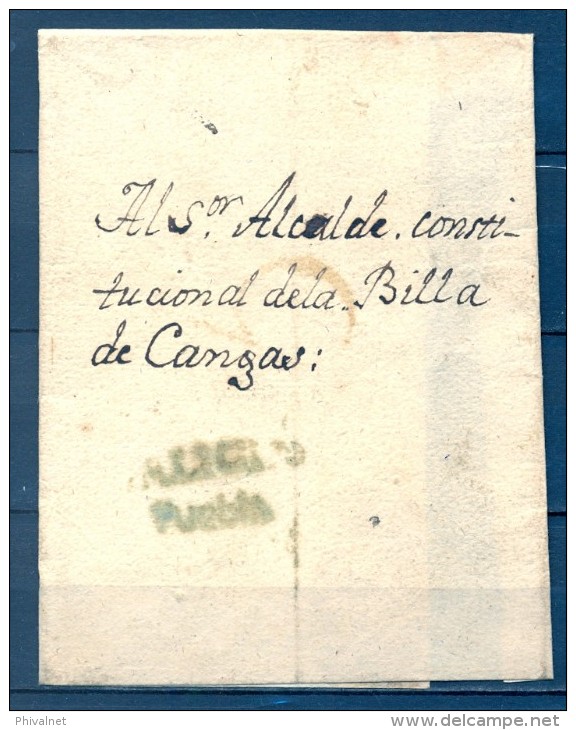 Al S.or Alcalde. consti-
tucional dela. Billa
de Cangas:
Phivalnet
delcampe.net